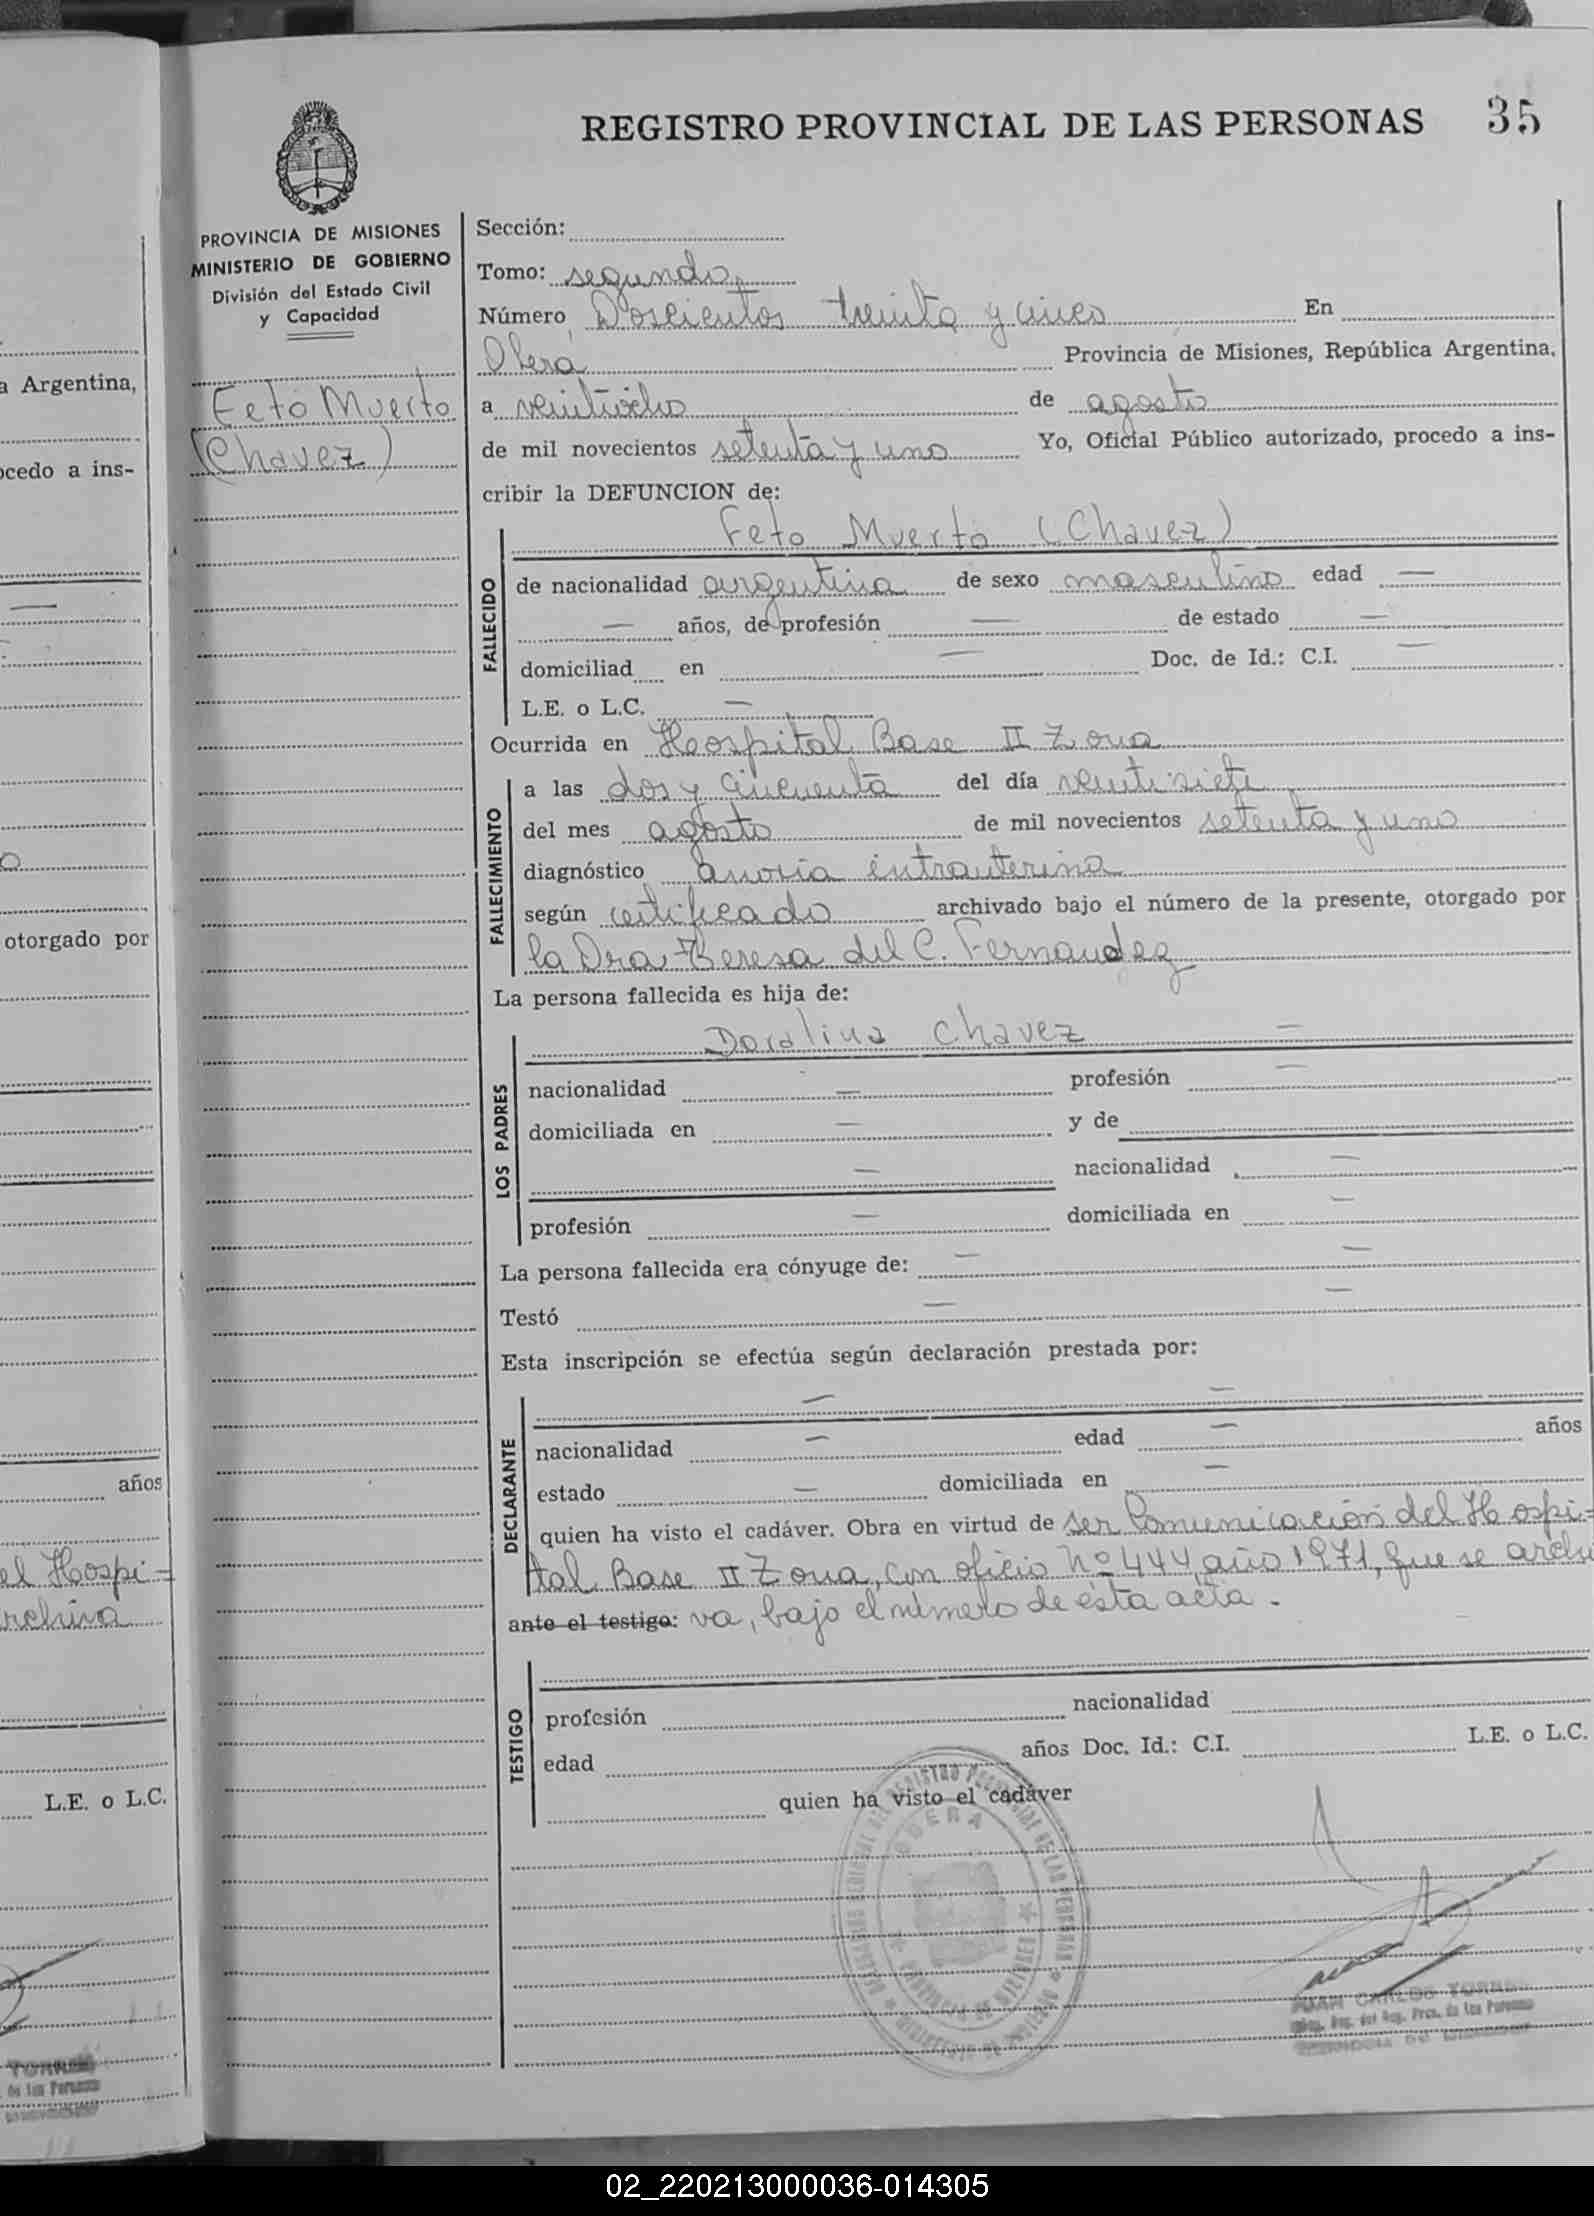 REGISTRO PROVINCIAL DE LAS PERSONAS 35
PROVINCIA DE MISIONES
MINISTERIO DE GOBIERNO
División del Estado Civil
y Capacidad
Feto Muerto
(Chavez)
Sección:
Tomo: segundo
Número Doscientos treinta y cinco En
Oberá Provincia de Misiones, República Argentina,
a veintiocho de agosto
de mil novecientos setenta y uno Yo, Oficial Público autorizado, procedo a ins-
cribir la DEFUNCION de:
Feto Muerto (Chavez)
FALLECIDO
de nacionalidad argentina de sexo masculino edad —
— años, de profesión — de estado —
domiciliad en — Doc. de Id.: C.I. —
L.E. o L.C. —
Ocurrida en Hospital Base II Zona
FALLECIMIENTO
a las dos y cincuenta del día veintisiete
del mes agosto de mil novecientos setenta y uno
diagnóstico Anoxia intrauterina
según certificado archivado bajo el número de la presente, otorgado por
la Dra Teresa del C. Fernandez
La persona fallecida es hija de:
LOS PADRES
Doralina Chavez —
nacionalidad — profesión —
domiciliada en — y de
— nacionalidad —
profesión — domiciliada en —
La persona fallecida era cónyuge de: — —
Testó — —
Esta inscripción se efectúa según declaración prestada por:
DECLARANTE
— —
nacionalidad — edad — años
estado — domiciliada en —
quien ha visto el cadáver. Obra en virtud de ser Comunicación del Hospi=
tal Base II Zona, con oficio nº 444, año 1971, que se archi
ante el testigo: va, bajo el número de ésta acta.
TESTIGO
profesión nacionalidad
edad años Doc. Id.: C.I. L.E. o L.C.
quien ha visto el cadáver
OBERA
PROVINCIA DE MISIONES
JUAN CARLOS TORRES
a Argentina,
ocedo a ins-
otorgado por
años
el Hospi=
rchiva
L.E. o L.C.
TORRES
de las Personas
02_220213000036-014305